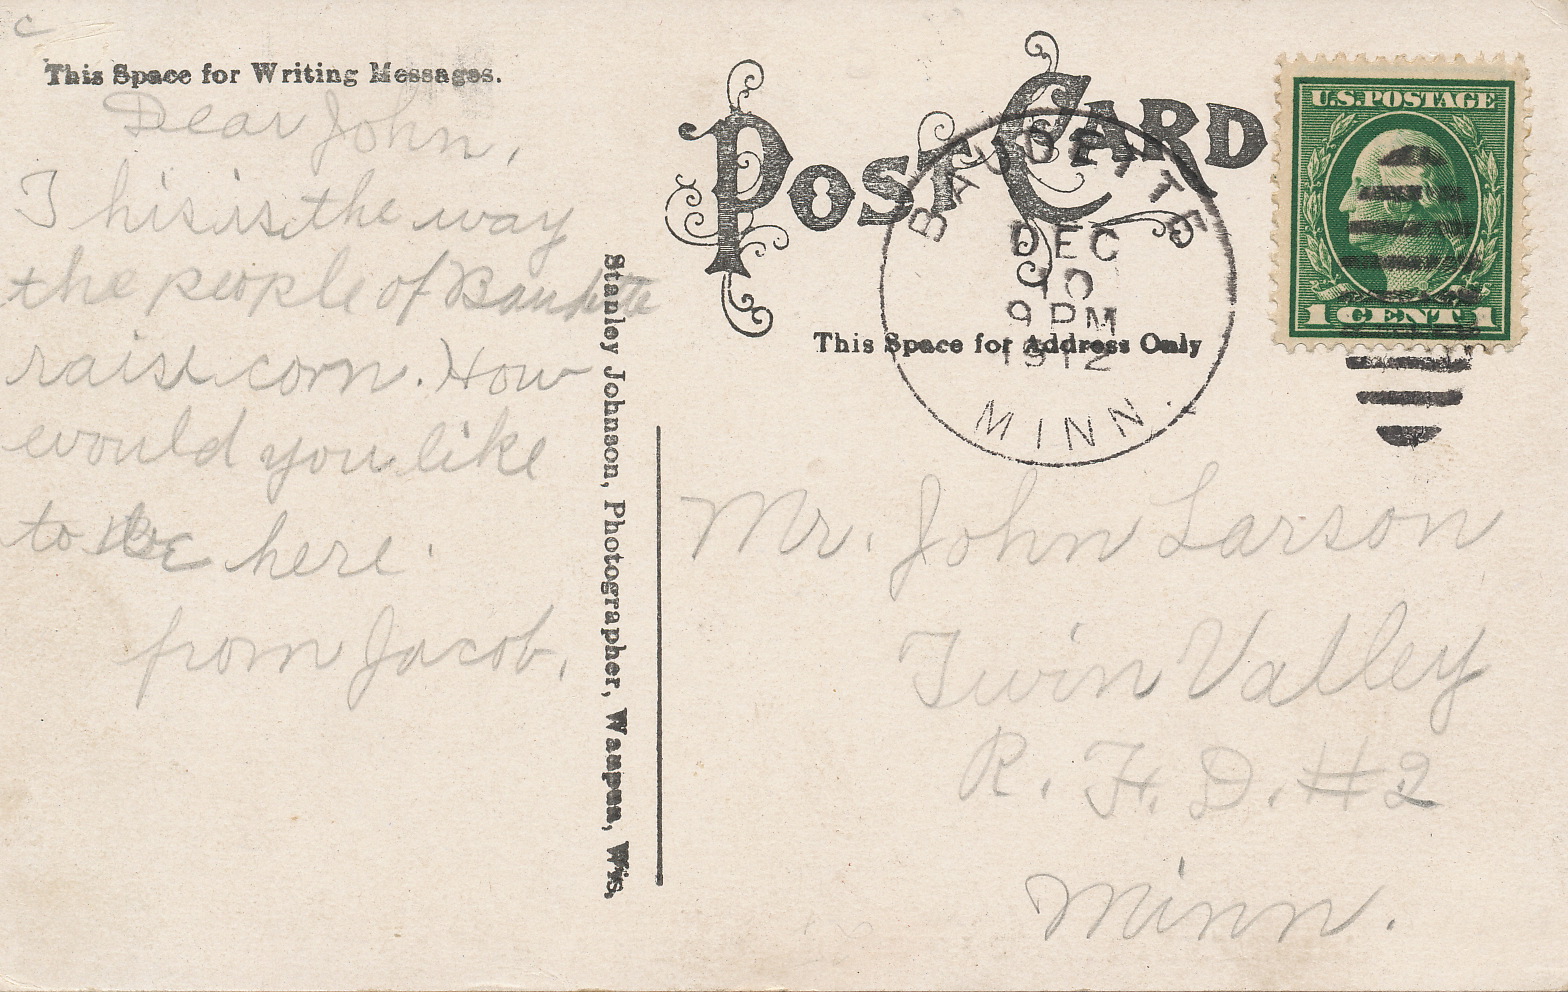 c
This Space for Writing Messages.
Dear John,
This is the way
the people of Baudette
raise corn. How
would you like
to be here.
from Jacob.
Stanley Johnson, Photographer, Waupun, Wis.
POST CARD
BAUDETTE
DEC
10
9 PM
1912
MINN.
This Space for Address Only
U.S. POSTAGE
1 CENT 1
Mr. John Larson
Twin Valley
R. F. D. #2
Minn.